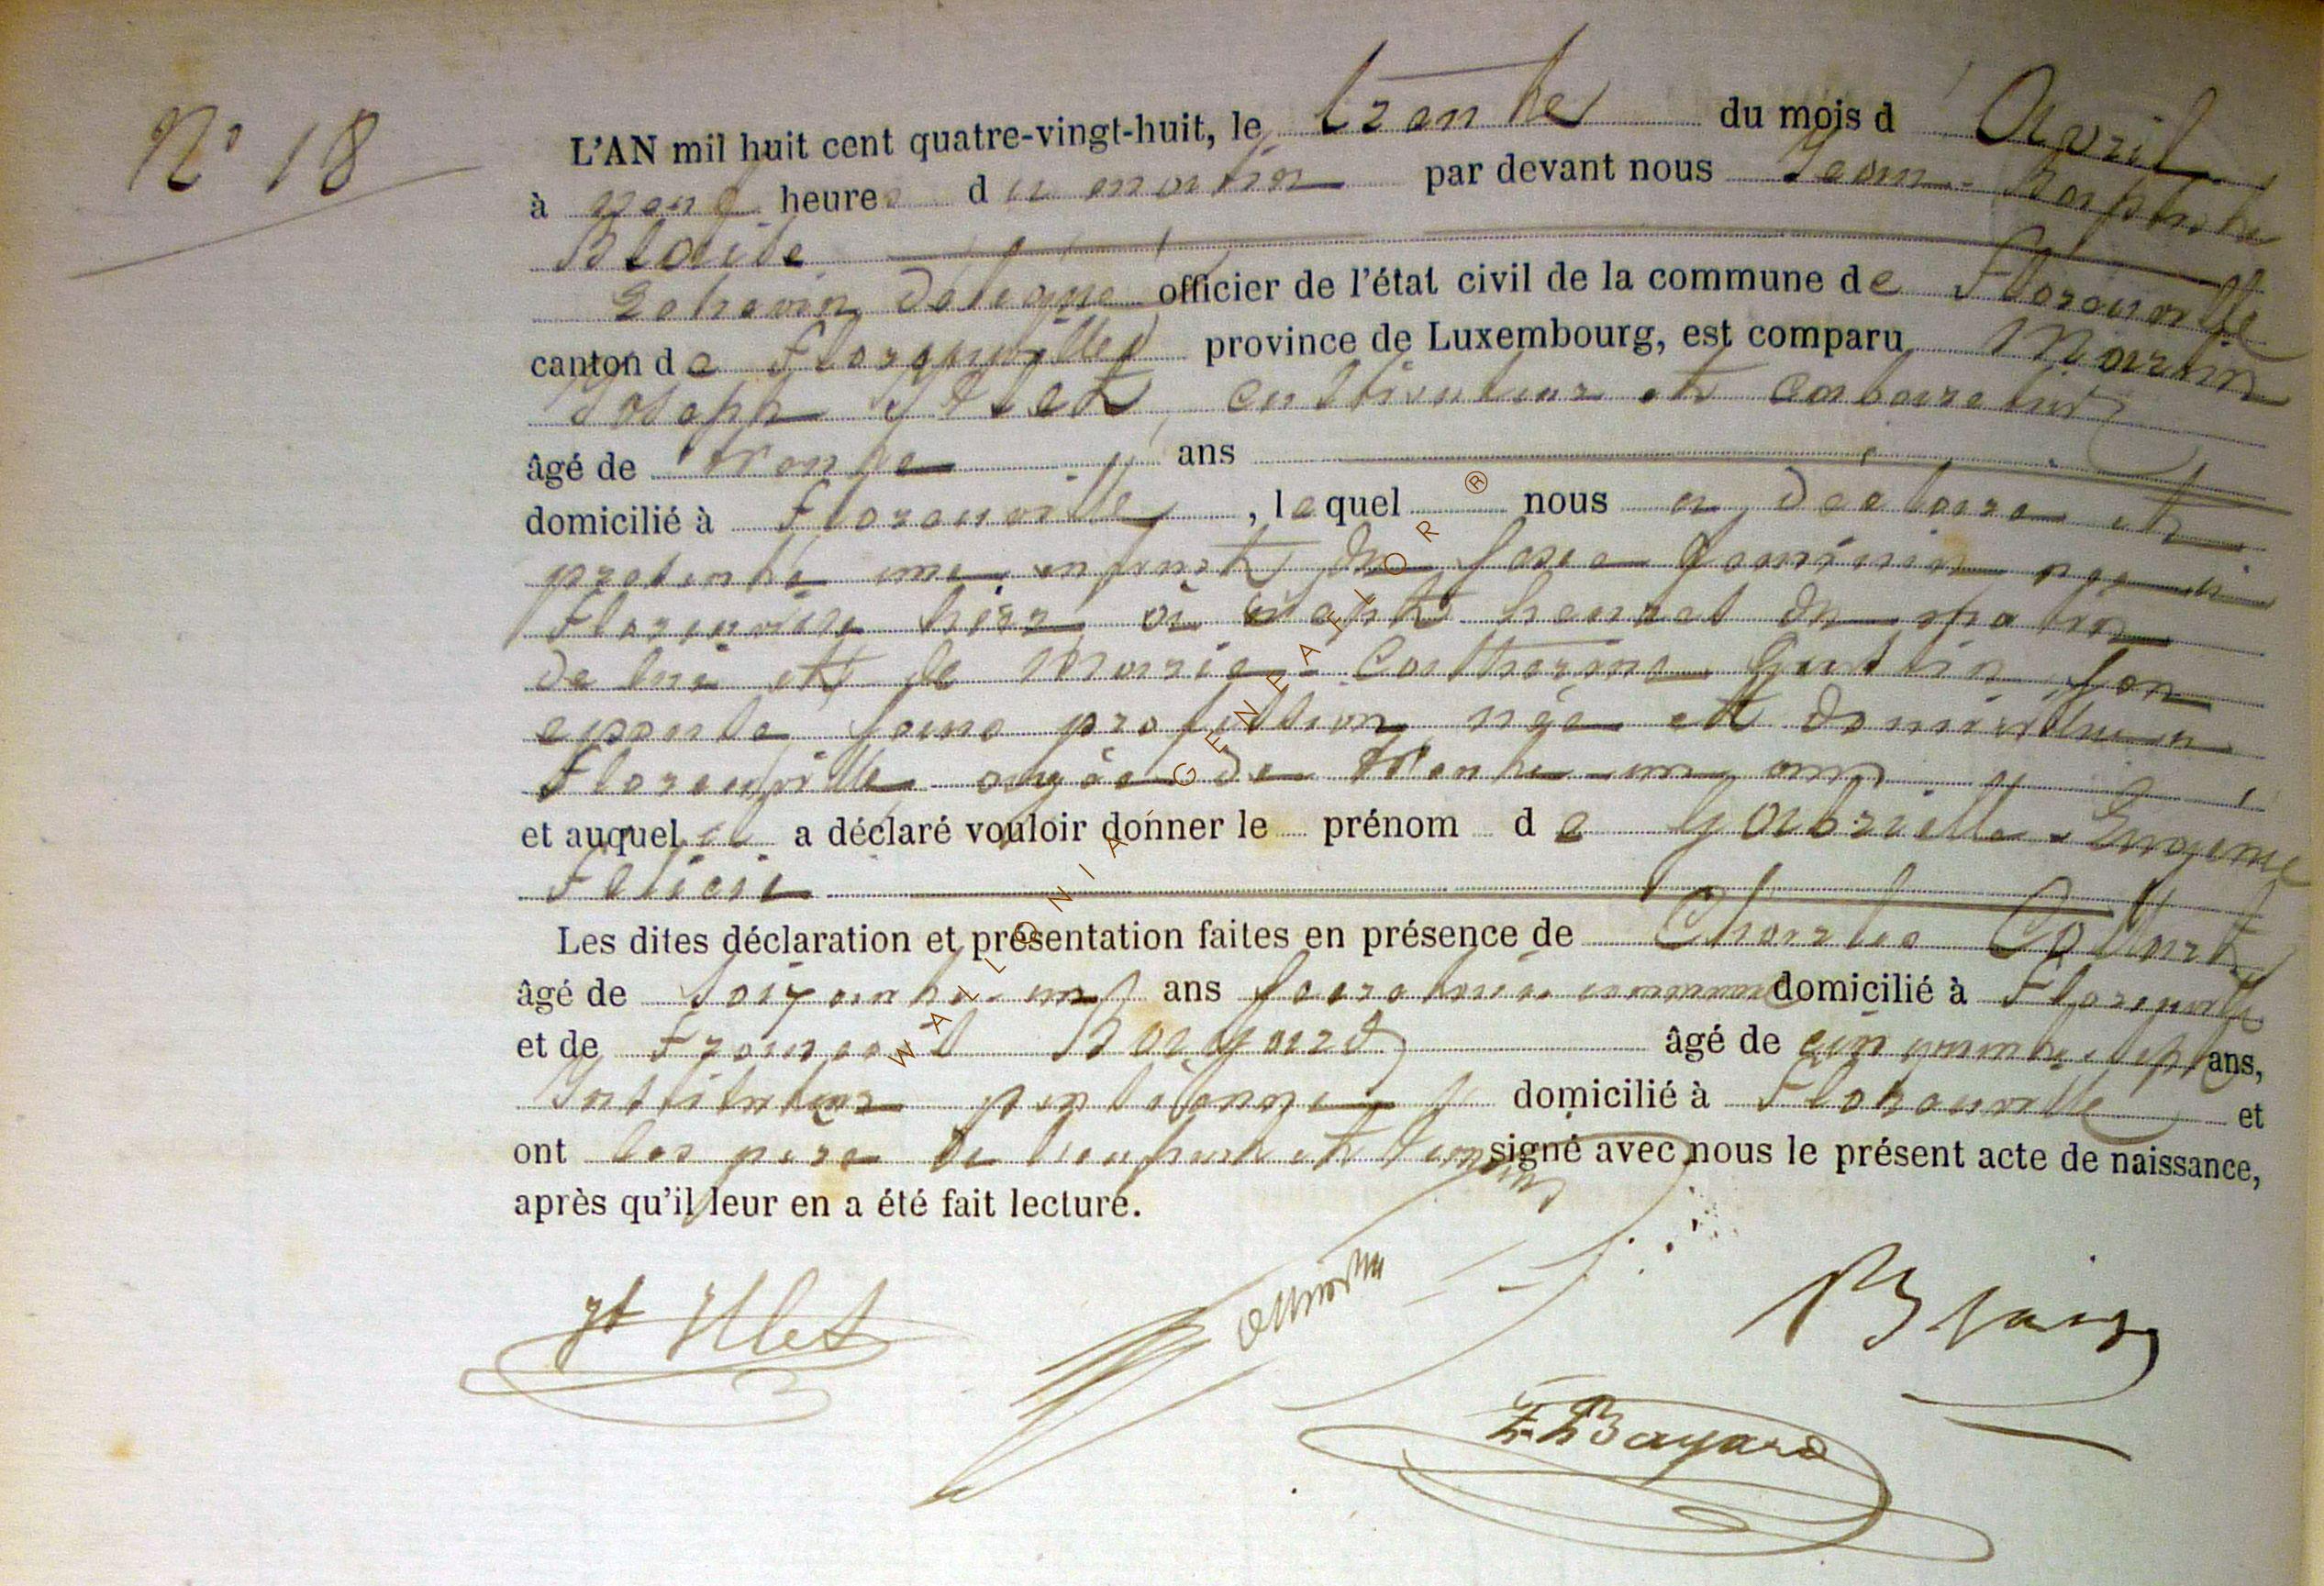 N° 18
L'AN mil huit cent quatre-vingt-huit, le trente du mois d'Avril
à neuf heures du matin par devant nous Jean-Baptiste
Blaise
Echevin délégué officier de l'état civil de la commune de Florenville
canton de Florenville province de Luxembourg, est comparu Martin
Joseph Ilet cultivateur et cabaretier
âgé de trente ans
domicilié à Florenville, lequel nous a déclaré et
présenté un enfant du sexe féminin né à
Florenville hier à sept heures du matin
de lui et de Marie-Catherine son
épouse sans profession née et domiciliée à
Florenville âgée de trente-un ans
et auquel il a déclaré vouloir donner le prénom de Gabrielle-Eugénie
Félicie
Les dites déclaration et présentation faites en présence de Charles Collard
âgé de soixante-un ans secrétaire communal domicilié à Florenville
et de François Bayard âgé de cinquante-sept ans,
Instituteur pensionné domicilié à Florenville et
ont les père de l'enfant et témoins signé avec nous le présent acte de naissance,
après qu'il leur en a été fait lecture.
Jh Ilet
Blaise
F. Bayard
WALLONIA GENEALOR ®